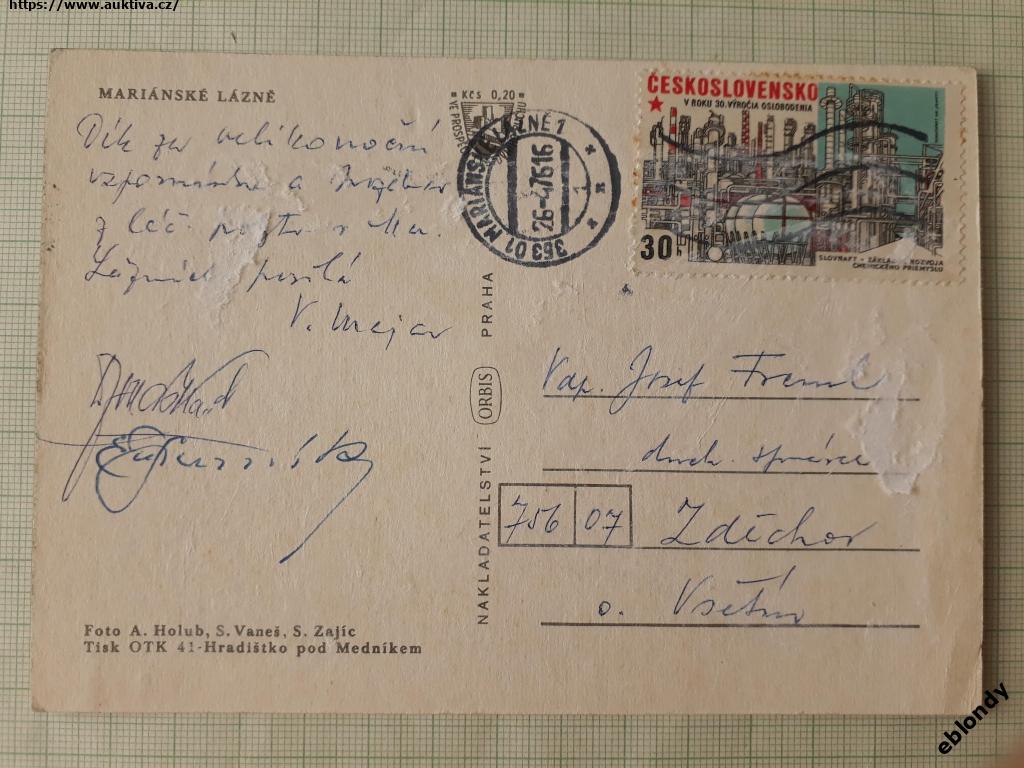 https://www.auktiva.cz/
MARIÁNSKÉ LÁZNĚ
Kčs 0,20
VE PROSPĚ
MARIÁNSKÉ LÁZNĚ 1
26.-4.76 16
353 01
1
ČESKOSLOVENSKO
V ROKU 30. VÝROČIA OSLOBODENIA
30h
SLOVNAFT - ZÁKLAD ROZVOJA
CHEMICKÉHO PRIEMYSLU
Dík za velikonoční
vzpomínku a
z léč. v Mar.
Lázních posílá
V.
NAKLADATELSTVÍ ORBIS PRAHA
Vdp. Josef
duch. správce
756 07 Zděchov
o. Vsetín
Foto A. Holub, S. Vaneš, S. Zajíc
Tisk OTK 41-Hradištko pod Medníkem
eblondy